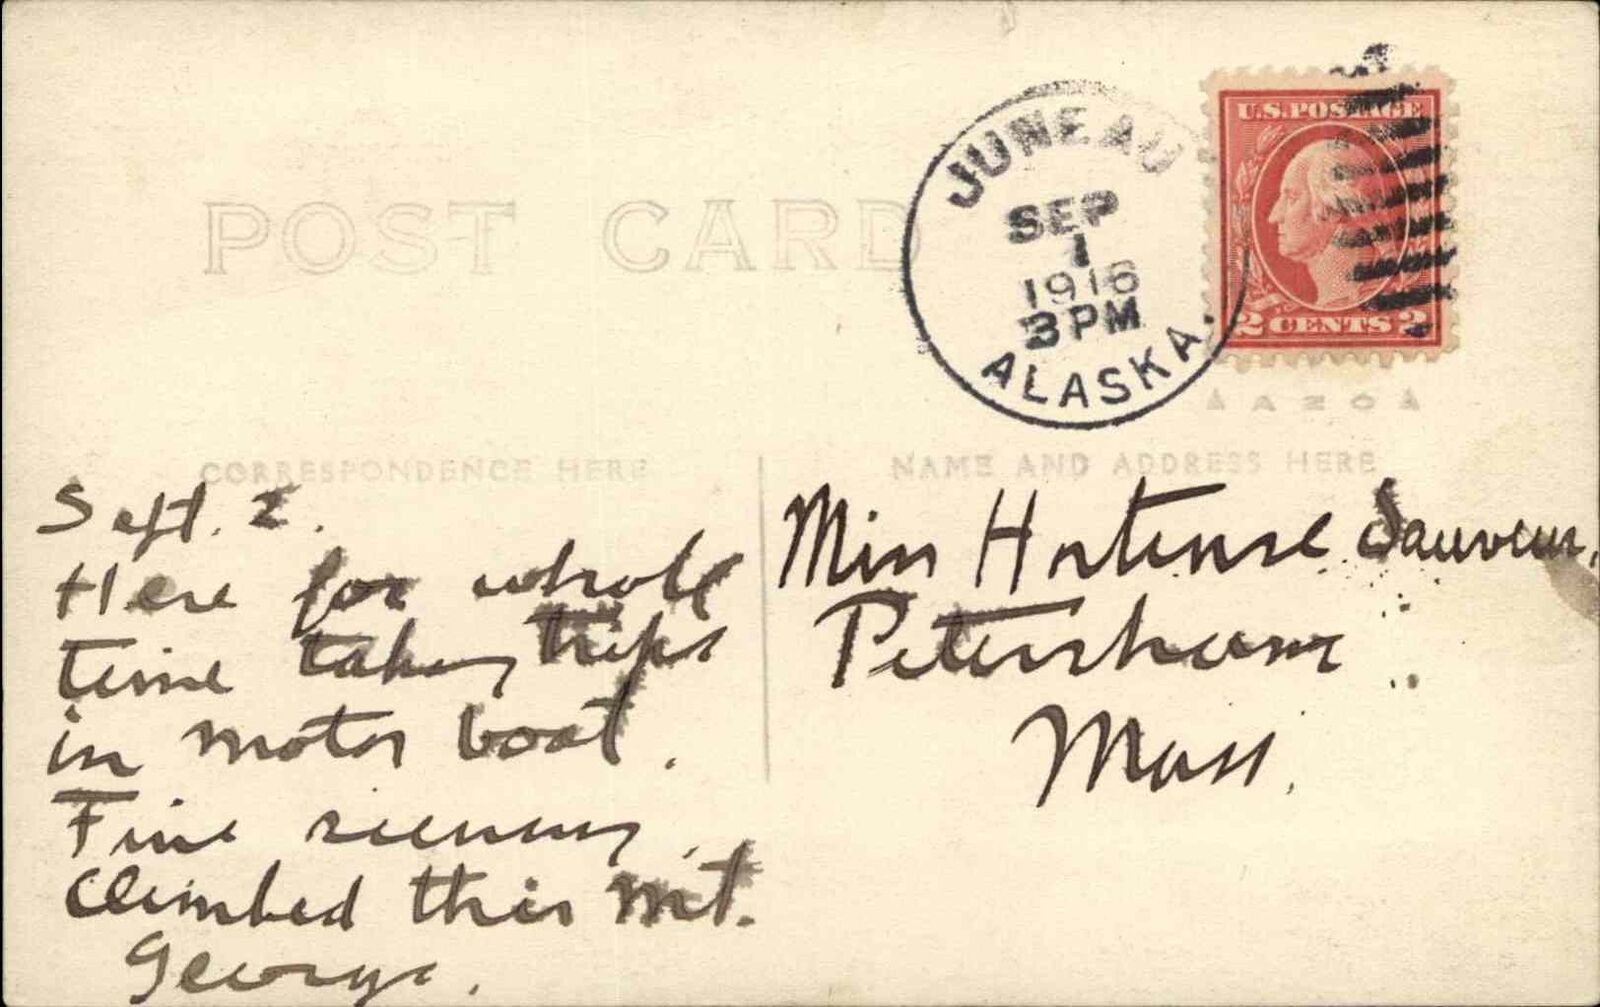 POST CARD
JUNEAU
SEP
1
1916
3 PM
ALASKA.
U.S. POSTAGE
2 CENTS 2
AZO
CORRESPONDENCE HERE
NAME AND ADDRESS HERE
Sept. 2.
Here for whole
time taking trips
in motor boat.
Fine scenery,
Climbed this Mt.
George.
Miss Hortense Sauveur,
Petersham
Mass.